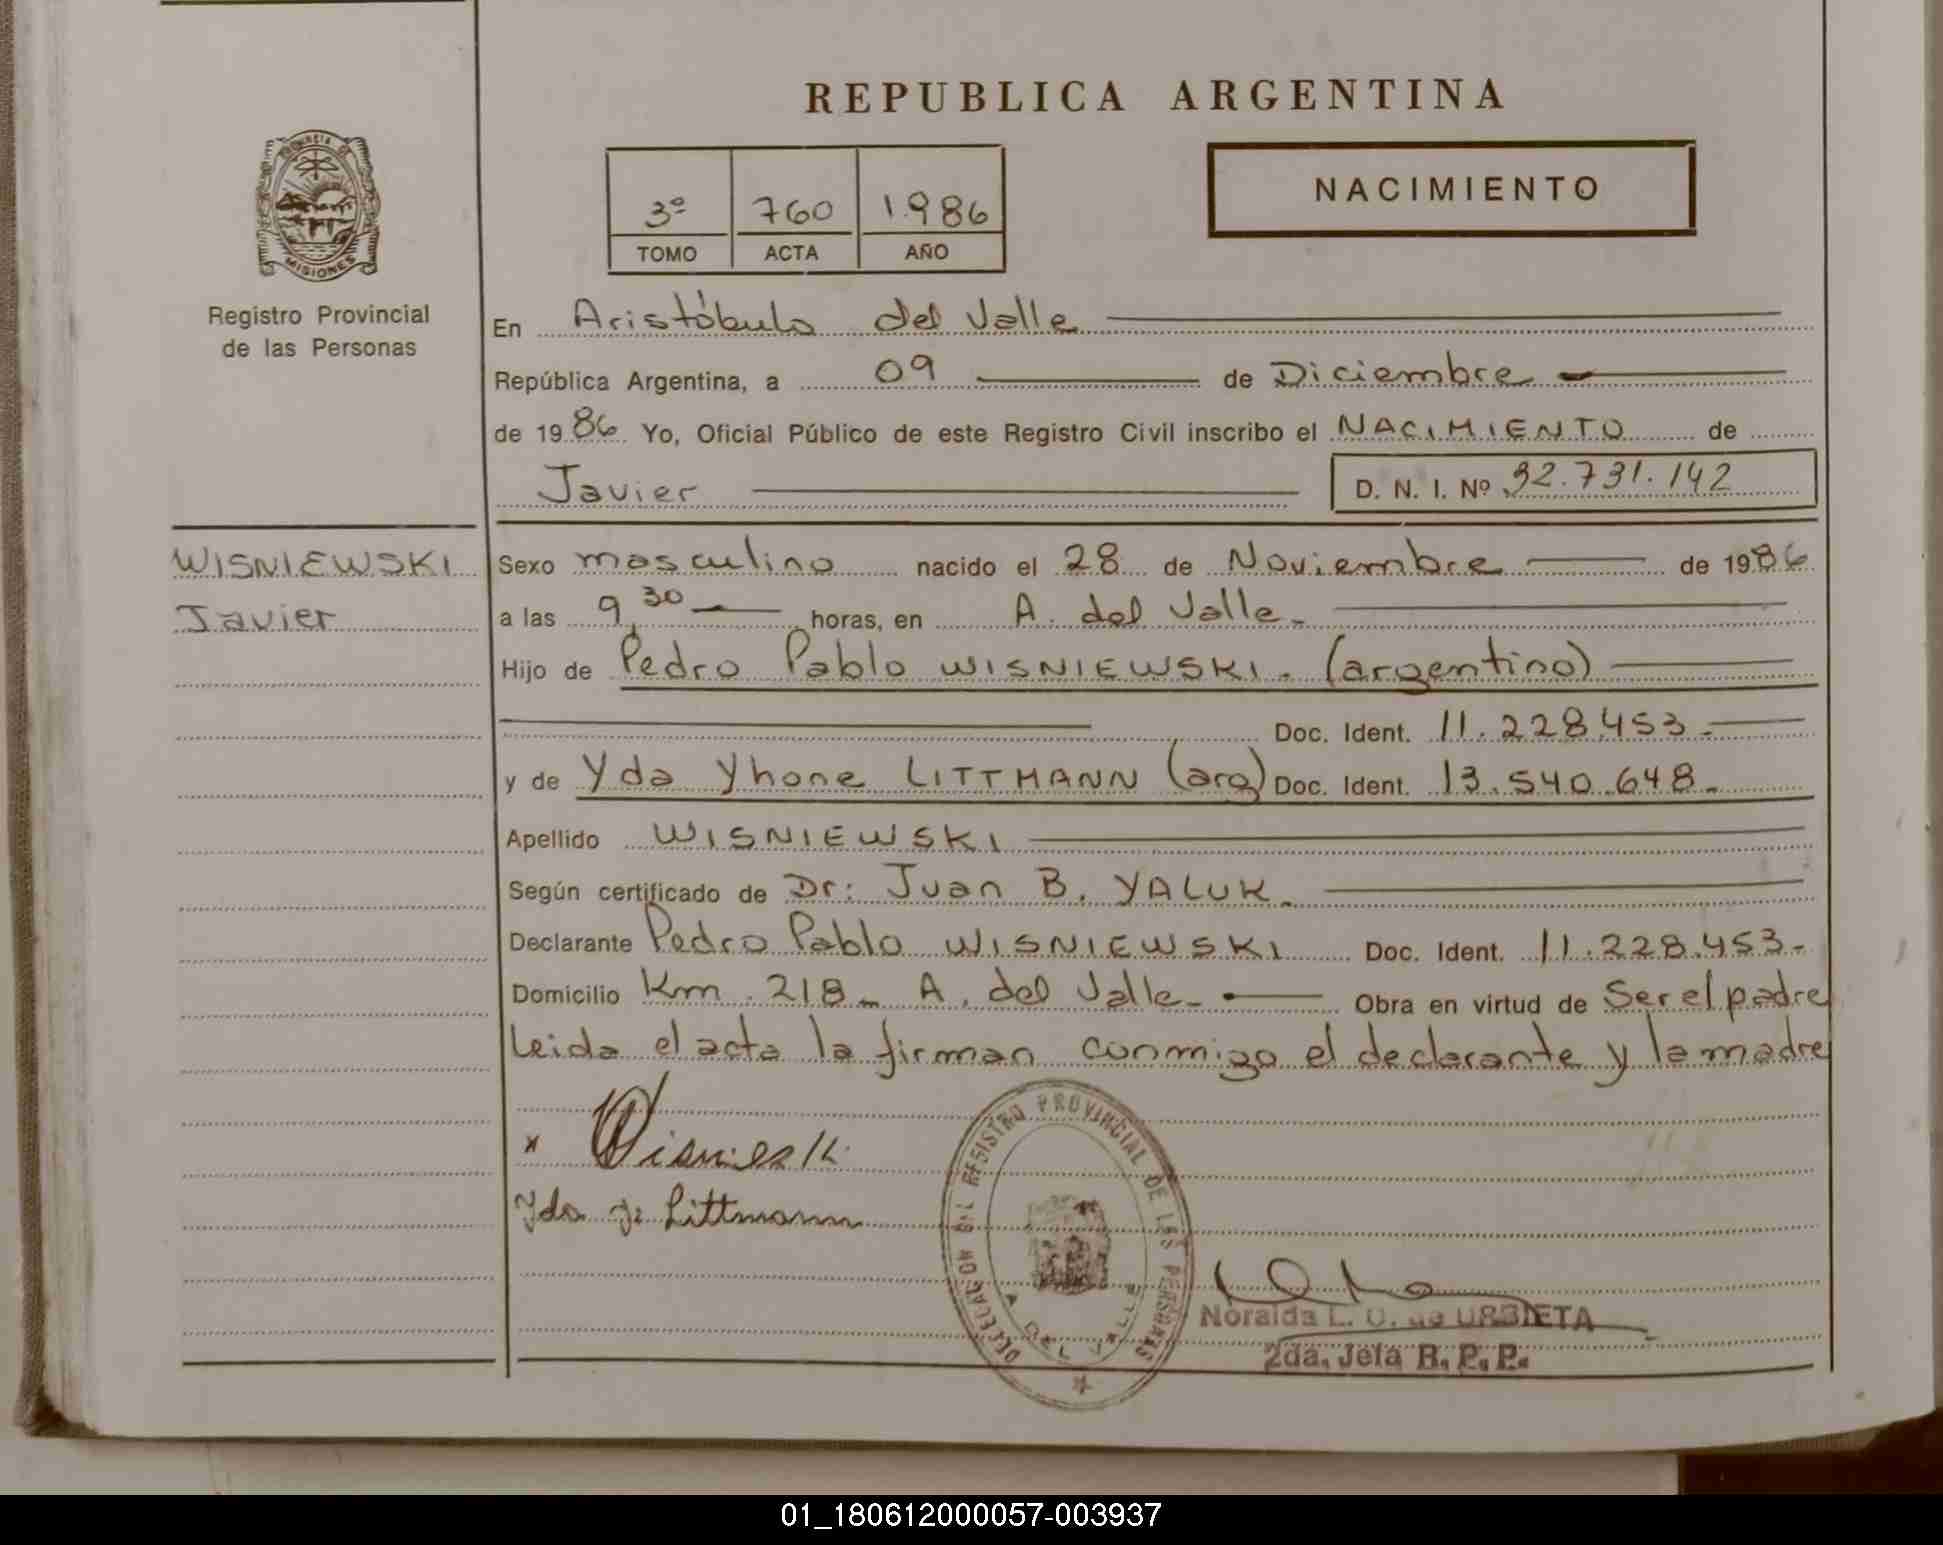 REPUBLICA ARGENTINA
PROVINCIA DE
MISIONES
Registro Provincial
de las Personas
NACIMIENTO
3º 760 1.986
TOMO ACTA AÑO
En Aristóbulo del Valle
República Argentina, a 09 de Diciembre
de 1986 Yo, Oficial Público de este Registro Civil inscribo el NACIMIENTO de
Javier D. N. I. Nº 32.731.142
WISNIEWSKI
Javier
Sexo masculino nacido el 28 de Noviembre de 1986
a las 9,30 horas, en A. del Valle.
Hijo de Pedro Pablo WISNIEWSKI. (argentino)
Doc. Ident. 11.228.453.
y de Yda Yhone LITTMANN (arg) Doc. Ident. 13.540.648.
Apellido WISNIEWSKI
Según certificado de Dr: Juan B. YALUK.
Declarante Pedro Pablo WISNIEWSKI Doc. Ident. 11.228.453.
Domicilio Km. 218. A. del Valle. Obra en virtud de Ser el padre
Leida el acta la firman conmigo el declarante y la madre
x
Yda Littmann
DELEGACION DEL REGISTRO PROVINCIAL DE LAS PERSONAS
A. DEL VALLE
Noralda L. O. de URBIETA
2da. Jefa R. P. P.
01_180612000057-003937